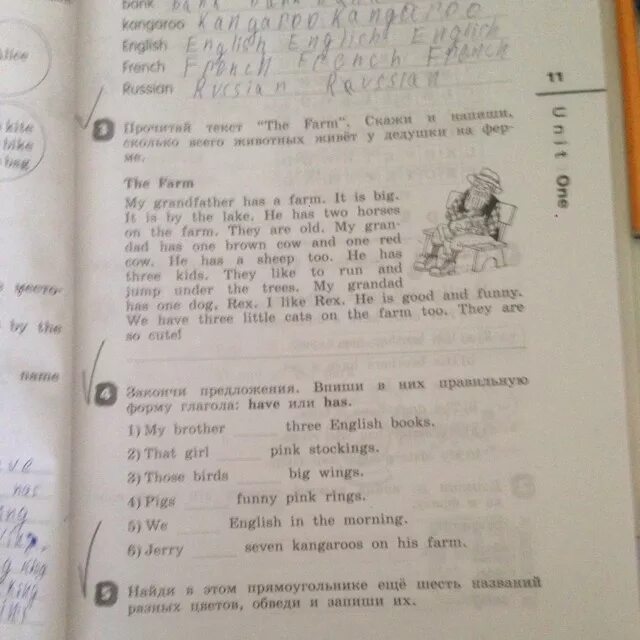 bank bank
kangaroo Kangaroo kangaroo
English English English English
French French French French
Russian Russian Russian
11
Unit One
3 Прочитай текст "The Farm". Скажи и напиши,
сколько всего животных живёт у дедушки на фер-
ме.
The Farm
My grandfather has a farm. It is big.
It is by the lake. He has two horses
on the farm. They are old. My gran-
dad has one brown cow and one red
cow. He has a sheep too. He has
three kids. They like to run and
jump under the trees. My grandad
has one dog, Rex. I like Rex. He is good and funny.
We have three little cats on the farm too. They are
so cute!
4 Закончи предложения. Впиши в них правильную
форму глагола: have или has.
1) My brother ____ three English books.
2) That girl ____ pink stockings.
3) Those birds ____ big wings.
4) Pigs ____ funny pink rings.
5) We ____ English in the morning.
6) Jerry ____ seven kangaroos on his farm.
5 Найди в этом прямоугольнике ещё шесть названий
разных цветов, обведи и запиши их.
kite
bike
by the
name